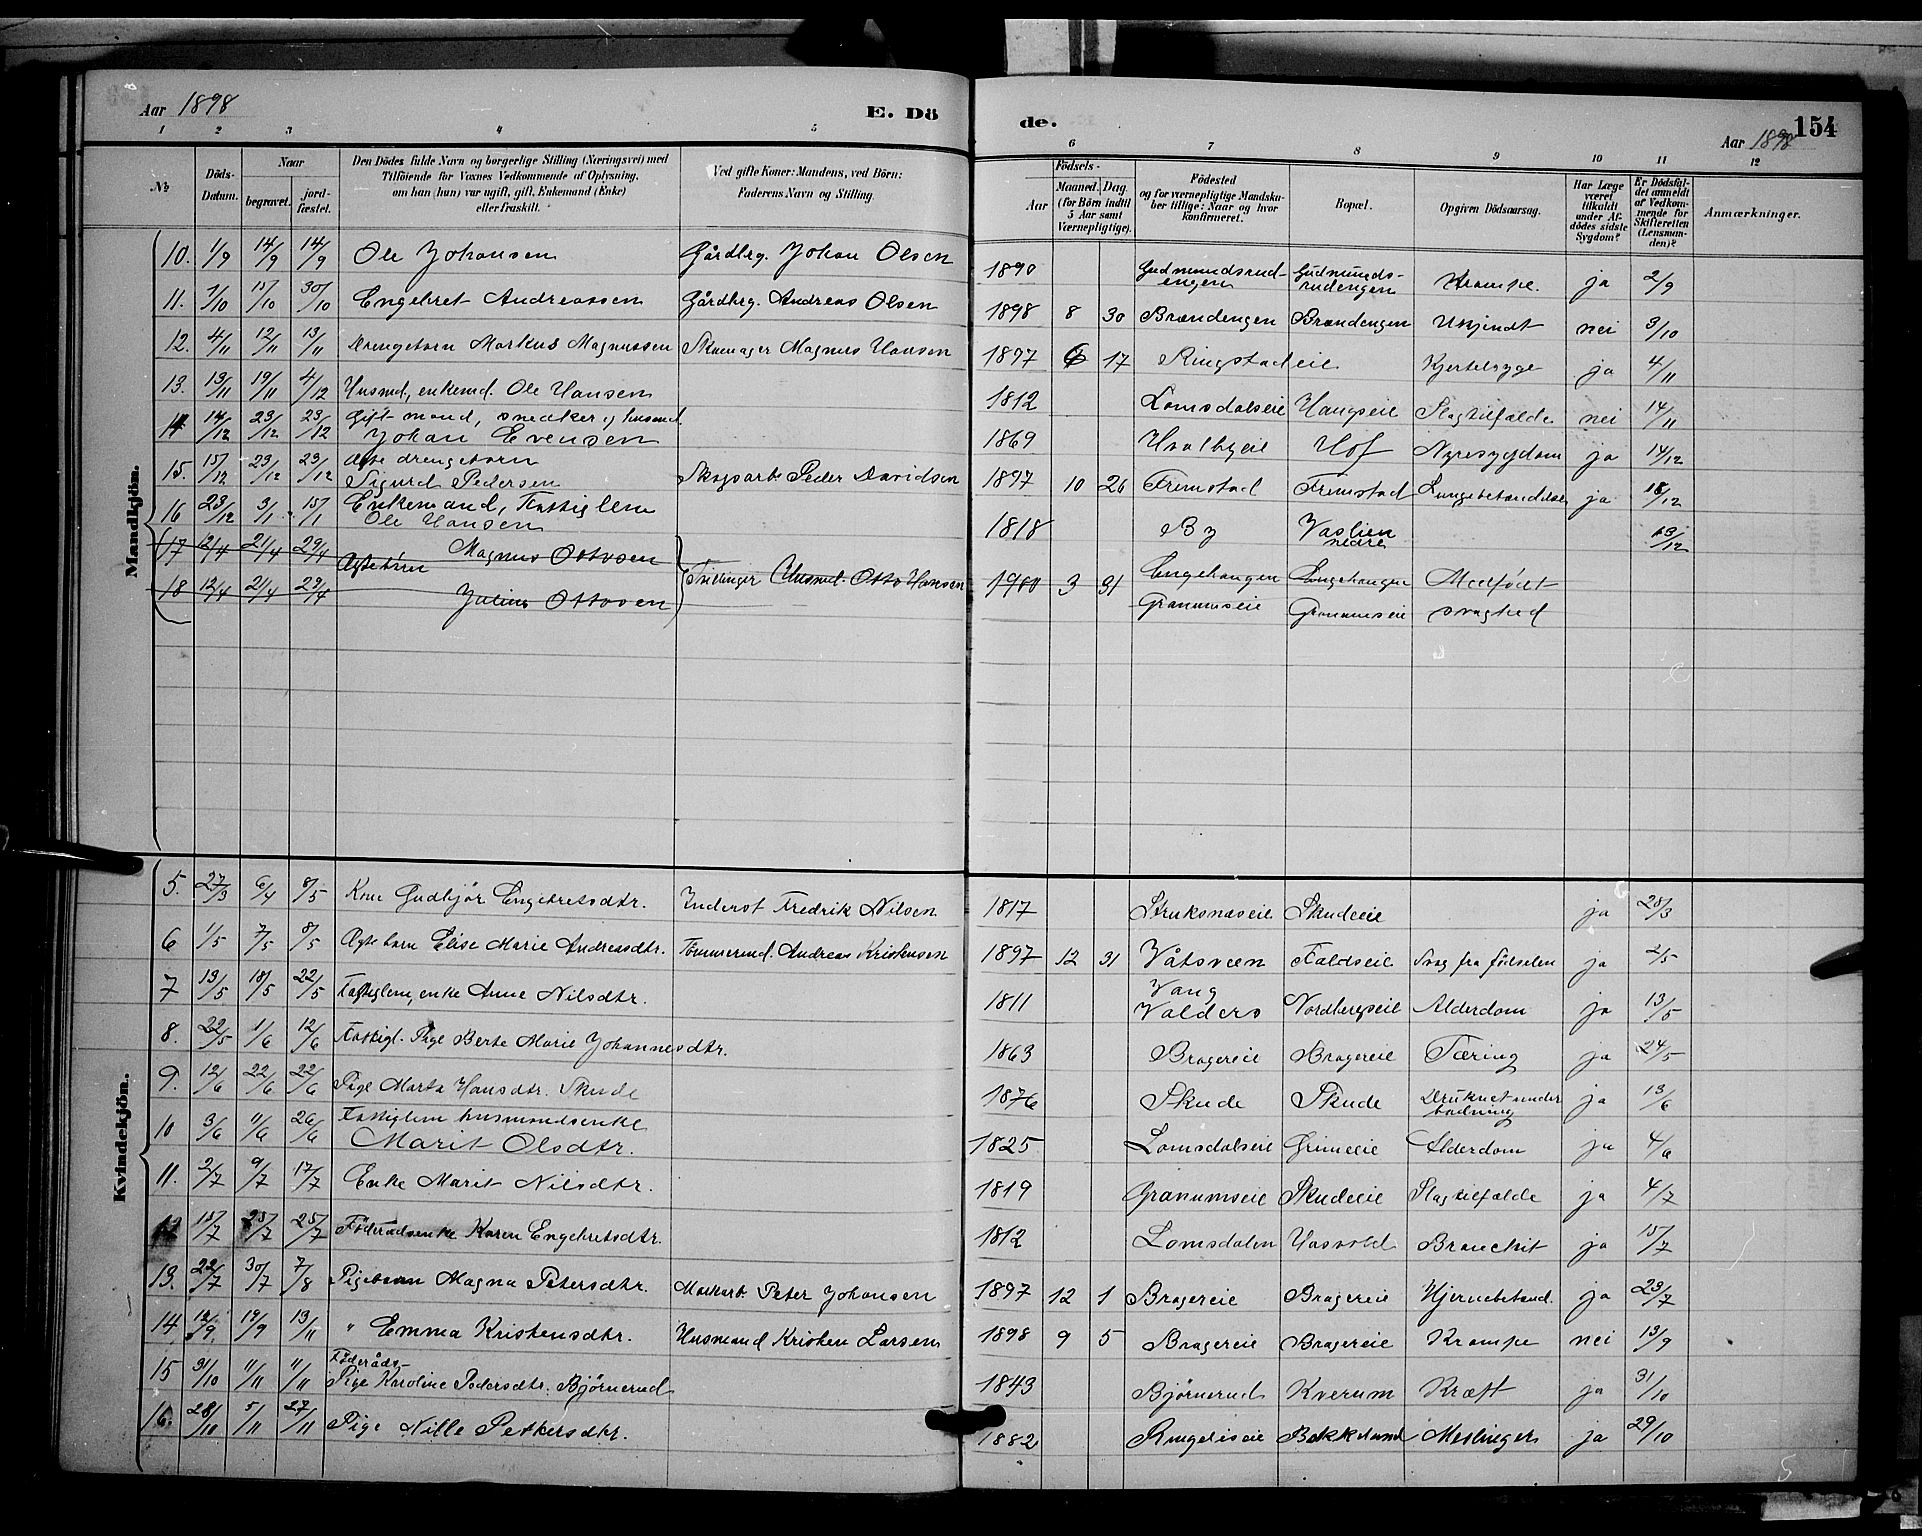 Aar 1898
E. Dö
de.
154
Aar 1898
1 2 3 4 5 6 7 8 9 10 11 12
No
Döds-Datum.
Naar
begravet.
jord-fæstet.
Den Dödes fulde Navn og borgerlige Stilling (Næringsvei) med
Tilföiende for Voxnes Vedkommende af Oplysning,
om han (hun) var ugift, gift, Enkemand (Enke)
eller fraskilt.
Ved gifte Koner: Mandens, ved Börn:
Faderens Navn og Stilling.
Födsels-
Aar
Maaned. Dag.
(for Börn indtil
5 Aar samt
Værnepligtige).
Födested
og for værnepligtige Mandska-
ber tillige: Naar og hvor
konfirmeret.
Bopæl.
Opgiven Dödsaarsag.
Har Læge
været
tilkaldt
under Af-
dödes sidste
Sygdom?
Er Dödsfal-
det anmeldt
af Vedkom-
mende for
Skifteretten
(Lensman-
den)?
Anmærkninger.
Mandkjön.
10. 1/9 14/9 14/9 Ole Johansen Gårdbrg. Johan Olsen 1890 Gudmundsrud-engen Gudmunds-rudengen Krampe. ja 2/9
11. 1/10 15/10 30/10 Engebret Andreassen Gårdbrg. Andreas Olsen 1898 8 30 Brændengen Brændengen Ukjendt nei 3/10
12. 4/11 12/11 13/11 Drengebarn Markus Magnussen Skomager Magnus Hansen 1897 6 17 Ringstadeie Kjertelsyge ja 4/11
13. 13/11 19/11 4/12 Husmd, enkemd. Ole Hansen 1812 Lomsdalseie Haugseie Slagtilfælde nei 14/11
14 14/12 23/12 23/12 Gift mand, snedker og husmd. Johan Evensen 1869 Hvalbyeie Hof Nyresygdom ja 14/12
15. 15/12 23/12 23/12 Ægte drengebarn Sigurd Pedersen Skogsarb. Peder Davidsen 1897 10 26 Fremstad Fremstad Lungebetændelse ja 15/12
16 23/12 3/1 15/1 Enkemand, Fattiglem Ole Hansen 1818 By Vaslien nedre 23/12
17 12/4 21/4 29/4 Ægte børn Magnus Ottosen
18 12/4 21/4 29/4 Julius Ottosen
Tvillinger Husmd. Otto Hansen 1900 3 31 Engehaugen Engehaugen Medfødt
Granumseie Granumseie svaghed
Kvindekjön.
5. 27/3 6/4 8/5 Kone Gudbjør Engebretsdtr. Inderst Fredrik Nilsen 1817 Struksnæseie Skudeeie ja 28/3
6 1/5 7/5 8/5 Ægte barn Elise Marie Andreasdtr. Tømmermd. Andreas Kristensen 1897 12 31 Våtsveen Faldseie Svag fra fødselen ja 2/5
7 13/5 18/5 22/5 Fattiglem, enke Anne Nilsdtr. 1811 Vang Valders Nordbergseie Alderdom ja 13/5
8. 22/5 1/6 12/6 Fattigl. Pige Berte Marie Johannesdtr. 1863 Bragereie Bragereie Tæring ja 24/5
9. 12/6 22/6 22/6 Pige Marta Hansdtr. Skude 1876 Skude Skude Druknet under badning ja 13/6
10 3/6 11/6 26/6 Fattiglem husmandsenke Marit Olsdtr. 1825 Lomsdalseie Grimeeie Alderdom ja 4/6
11. 2/7 9/7 17/7 Enke Marit Nilsdtr. 1819 Granumseie Skudeeie Slagtilfælde ja 4/7
12 15/7 25/7 25/7 Føderådsenke Karen Engebretsdtr. 1812 Lomsdalen Hasvold Bronchit ja 15/7
13. 22/7 30/7 7/8 Pigebarn Magna Petersdtr. Markarb. Peter Johansen 1897 12 1 Bragereie Bragereie Hjernebetænd. ja 23/7
14. 12/9 19/9 13/11 " Emma Kristensdtr. Husmand Kristen Larsen 1898 9 5 Bragereie Bragereie Krampe nei 13/9
15 31/10 11/11 11/11 Føderåds-Pige Karoline Pedersdtr. Bjørnerud 1843 Bjørnerud Kverum Kræft ja 31/10
16. 28/10 5/11 27/11 Pige Nille Pettersdtr. 1882 Ringeliseie Bakkelund Meslinger ja 29/10